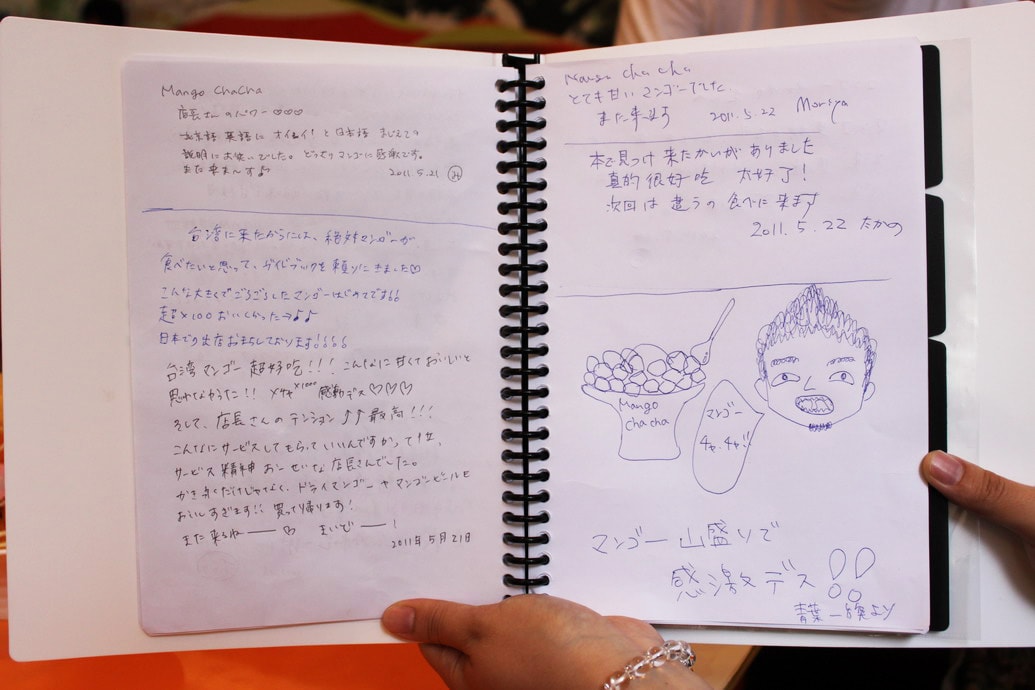 Mango ChaCha
店長さんのパワー♡♡♡
英語に オイシイ！と日本語 まじえての
説明に大笑いでした。どっさりマンゴに感激です。
また来まーす♪
2011.5.21
台湾に来たからには、絶対マンゴーが
食べたいと思って、ガイドブックを頼りにきました♡
こんな大きくてごろごろしたマンゴーはじめてです!!
超×100おいしかった→♪♪
日本での出店おまちしております!!!!
台湾マンゴー 超好吃!!! こんなに甘くておいしいと
思わなかった!! メチャ×1000 感動デス♡♡♡
そして、店長さんのテンション⤴⤴最高!!!
こんなにサービスしてもらっていいんですかって位、
サービス精神おーせいな店長さんでした。
かき氷だけじゃなく、ドライマンゴーやマンゴービールも
おいしすぎます!! 買って帰ります!
また来るねー♡ まいどー!
2011年5月21日
Mango cha cha
とても甘いマンゴーでした。
また来ます 2011.5.22 Moriya
本で見つけ来たかいがありました
真的很好吃 太好了!
次回は違うの食べに来ます
2011.5.22 たかの
Mango
cha cha
マンゴー
チャ・チャ!!
マンゴー山盛りで
感激デス!!
青葉
より